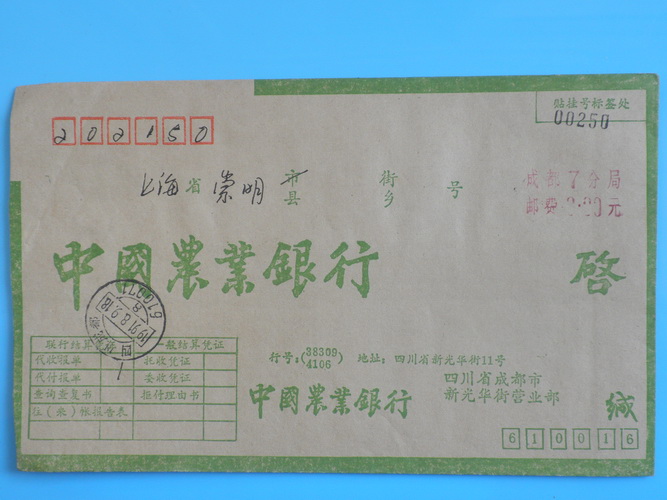 贴挂号标签处
00250
202150
上海省崇明市县 街乡 号
成都7分局
邮资 元
中國農業銀行 啓
610071
8
1991.8.9.18
四川成都
联行结算 一般结算凭证
代收报单 托收凭证
代付报单 委收凭证
查询查复书 拒付理由书
往(来)帐报告表
行号:(38309 4106) 地址:四川省新光华街11号
中國農業銀行 四川省成都市
新光华街营业部 缄
610016